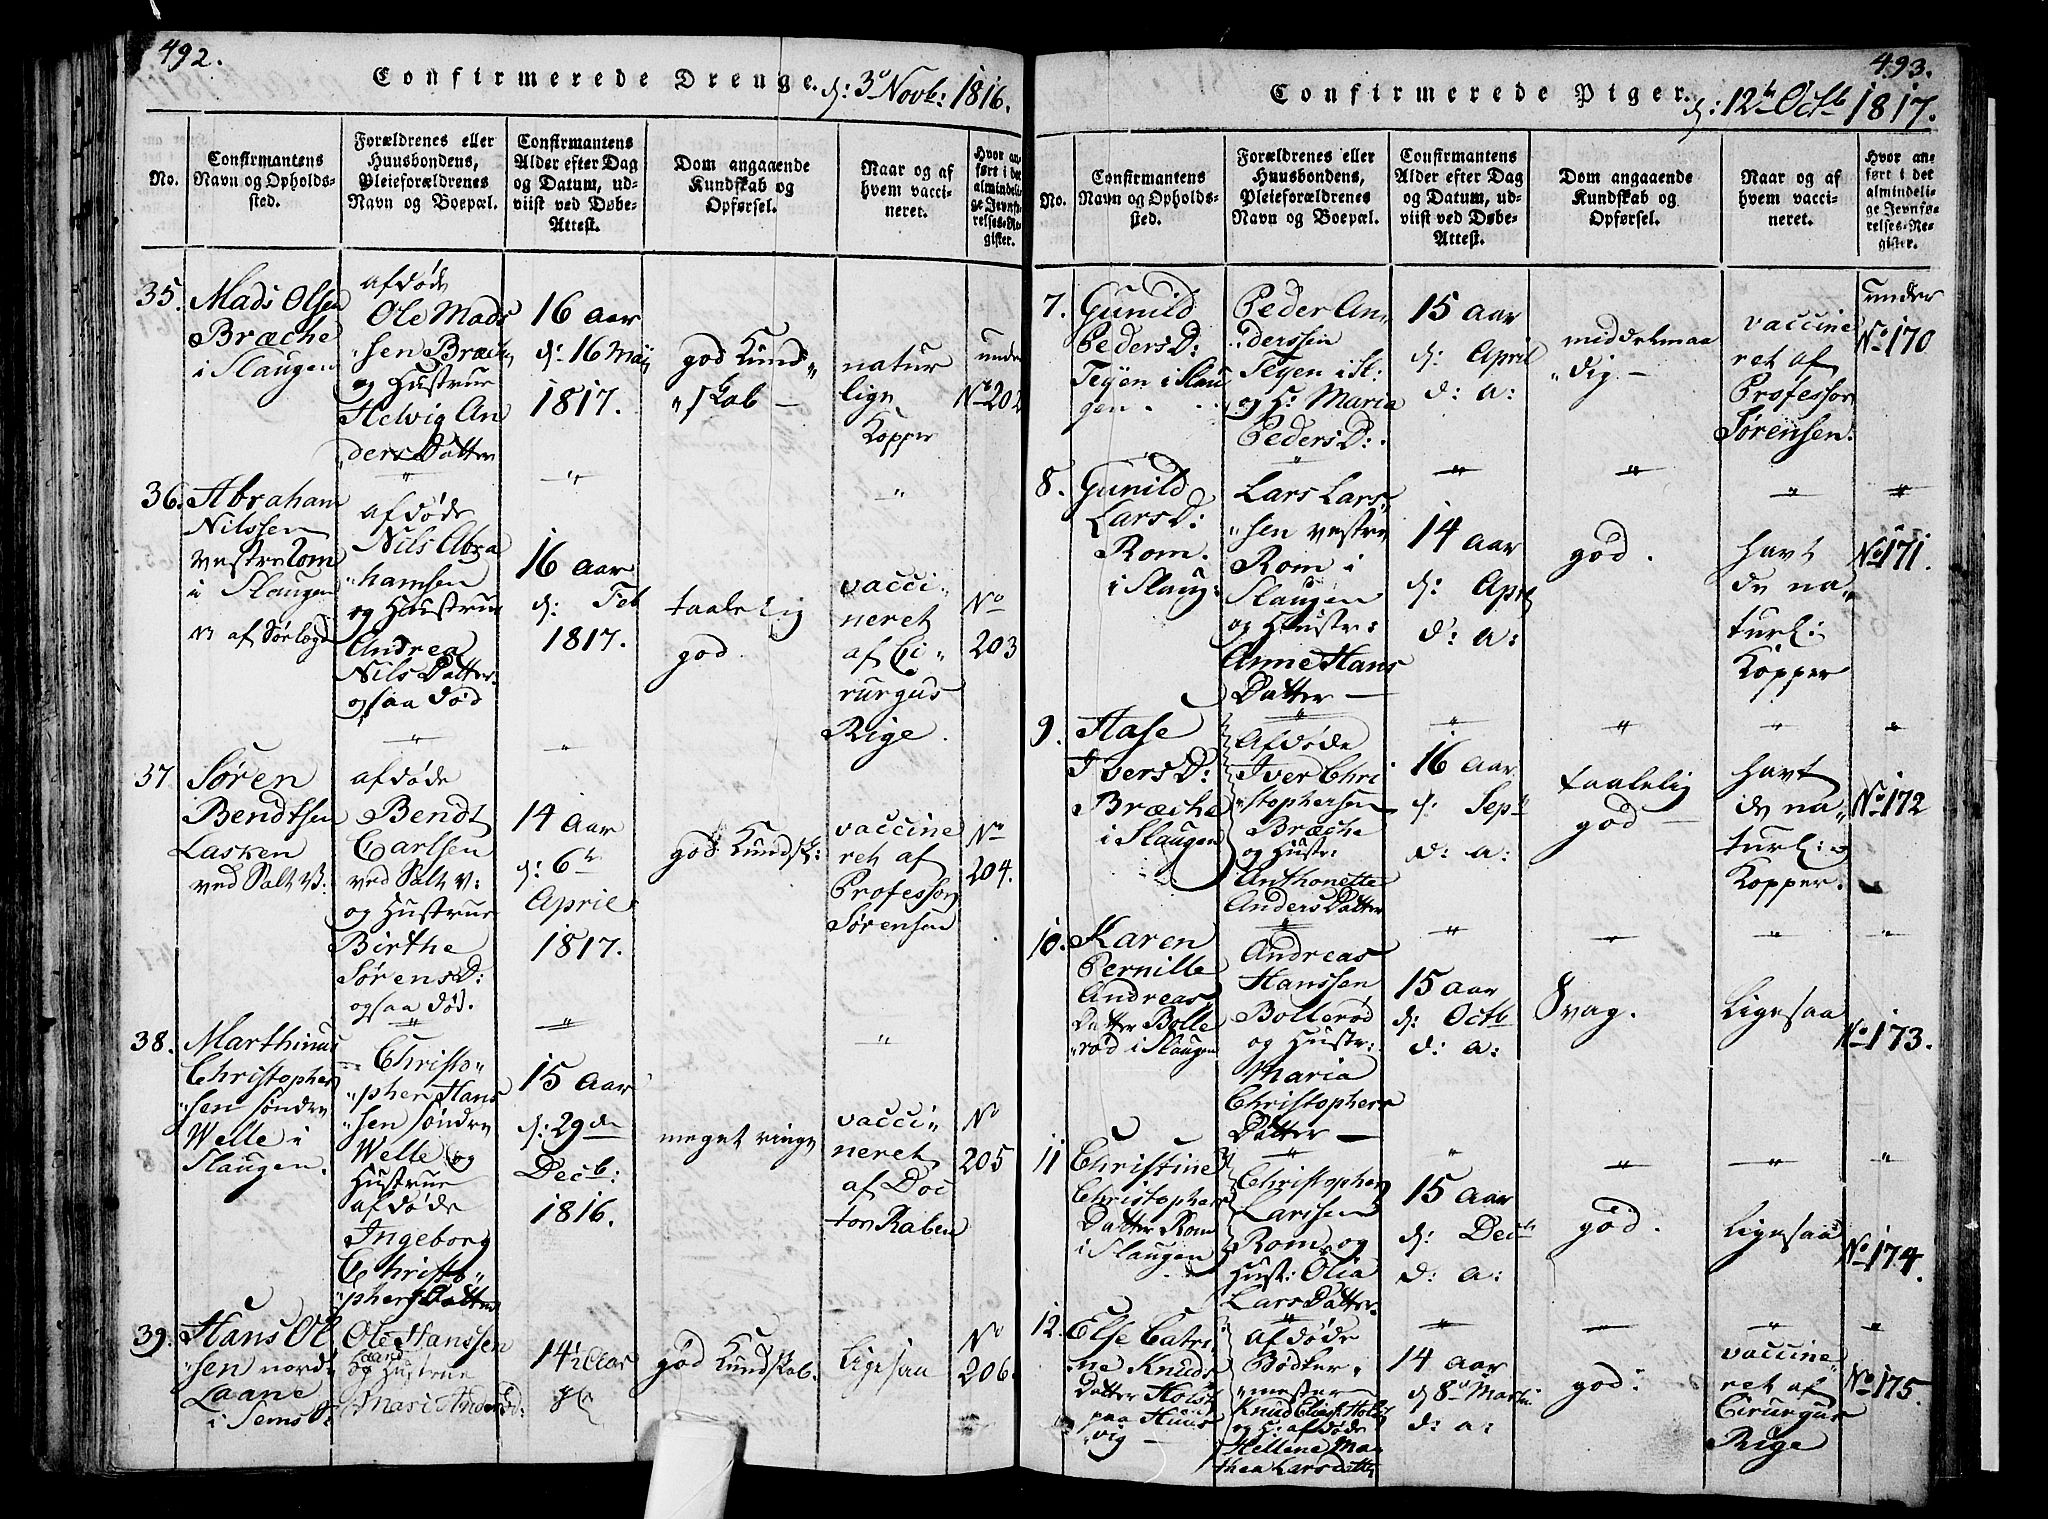 492.
Confirmerede Drenge. d: 3die Novb: 1816.
No.
Confirmantens
Navn og Opholds-
sted.
Forældrenes eller
Huusbondens,
Pleieforældrenes
Navn og Boepæl.
Confirmantens
Alder efter Dag
og Datum, ud-
viist ved Døbe-
Attest.
Dom angaaende
Kundskab og
Opførsel.
Naar og af
hvem vacci-
neret.
Hvor an-
ført i det
almindeli-
ge Jevnfø-
relses-Re-
gister.
35.
Mads Olsen
Bræche
i Slaugen
afdøde
Ole Mads
"sen Bræche
og Hustrue
Helvig An
"ders Datter
16 aar
d: 16 Maij
1817.
god Kund"
"skab —
natur
lige
Kopper
under
No 202
36.
Abraham
Nilssen
vestre Rom
i Slaugen
afdøde
Nils Abra
"hamsen
og Hustrue
Andrea
Nils Datter
ogsaa død
16 aar
d: Feb
1817.
taalelig
god.
vacci"
neret
af Ci"
rurgus
Rige.
No
203
37
Søren
Bendtsen
Lasken
ved Salt V.
afdøde
Bendt
Carlsen
ved Salt v:
og Hustrue
Birthe
Sørens D:
ogsaa død.
14 aar
d: 6te
April
1817.
god Kundsk:
vaccine
ret af
Professor
Sørensen
No
204.
38.
Marthinus
Christopher
"sen søndre
Welle i
Slaugen.
Christo"
"pher Hans
"sen søndre
Welle og
Hustrue
afdøde
Ingeborg
Christo"
"phers Datter
15 aar
d: 29de
Decb:
1816.
meget ringe
vacci"
neret
af Doc
tor Raben
No
205
39.
Hans Ol
"sen nord"
Laane
i Sems S:
Ole Hanssen
og Hustrue
Mari Anders D:
14½ Aar
gl
god Kundskab.
Ligesaa
No
206.
493.
Confirmerede Piger. d: 12te Octb 1817.
No.
Confirmantens
Navn og Opholds-
sted.
Forældrenes eller
Huusbondens,
Pleieforældrenes
Navn og Boepæl.
Confirmantens
Alder efter Dag
og Datum, ud-
viist ved Døbe-
Attest.
Dom angaaende
Kundskab og
Opførsel.
Naar og af
hvem vacci-
neret.
Hvor an-
ført i det
almindeli-
ge Jevnfø-
relses-Re-
gister.
7.
Gunild
Peders D:
Teyen i Slau
gen.
Peder An"
"derssen
Teyen i Sl:
og H: Maria
Peders D:
15 aar
d: April
d: a:
middelmaa
"dig —
vaccine
ret af
Professor
Sørensen.
under
No 170
8.
Gunild
Lars D:
Rom.
i Slaug:
Lars Lars"
"sen vestre
Rom i
Slaugen
og Hustr:
Anne Hans
Datter —
14 aar
d: Apr
d: a:
god.
havt
de na"
turl:
Kopper
No 171.
9.
Aase
Ivers D:
Bræche
i Slaugen
Afdøde
Iver Chri
"stophersen
Bræche
og Hustr:
Anthonette
Anders Datter
16 aar
d: Sept
d: a:
taalelig
god —
havt
de na"
turl:
Kopper.
No 172
10.
Karen
Pernille
Andreas
Datter Bolle
"rød i Slaugen
Andreas
Hanssen
Bollerød
og Hustr:
Maria
Christophers
Datter —
15 aar
d: Octb
d: a:
Svag.
Ligesaa
No 173.
11
Christine
Christopher
Datter Rom
i Slaugen
Christopher
Larssen
Rom og
Hust: Olia
Lars Datter.
15 aar
d: Decb
d: a:
god.
Ligesaa
No 174.
12.
Else Catri
ne Knuds
Datter Holst
paa Huus
vig —
afdøde
Bødker"
"mester
Knud Holst
og H: afdøde
Hellene Ma
thea Larsdatter
14 aar
d 8de Marti
d: a:
god.
vaccine"
ret af
Cirurgus
Rige
No 175.